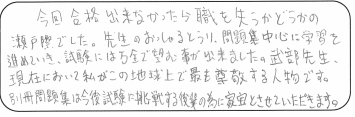 今回合格出来なかったら職を失うかどうかの
瀬戸際でした。先生のおっしゃるとうり、問題集中心に学習を
進めていき、試験には万全で望む事が出来ました。武部先生、
現在において私がこの地球上で最も尊敬する人物です。
別冊問題集は今後試験に挑戦する後輩の為に家宝とさせていただきます。